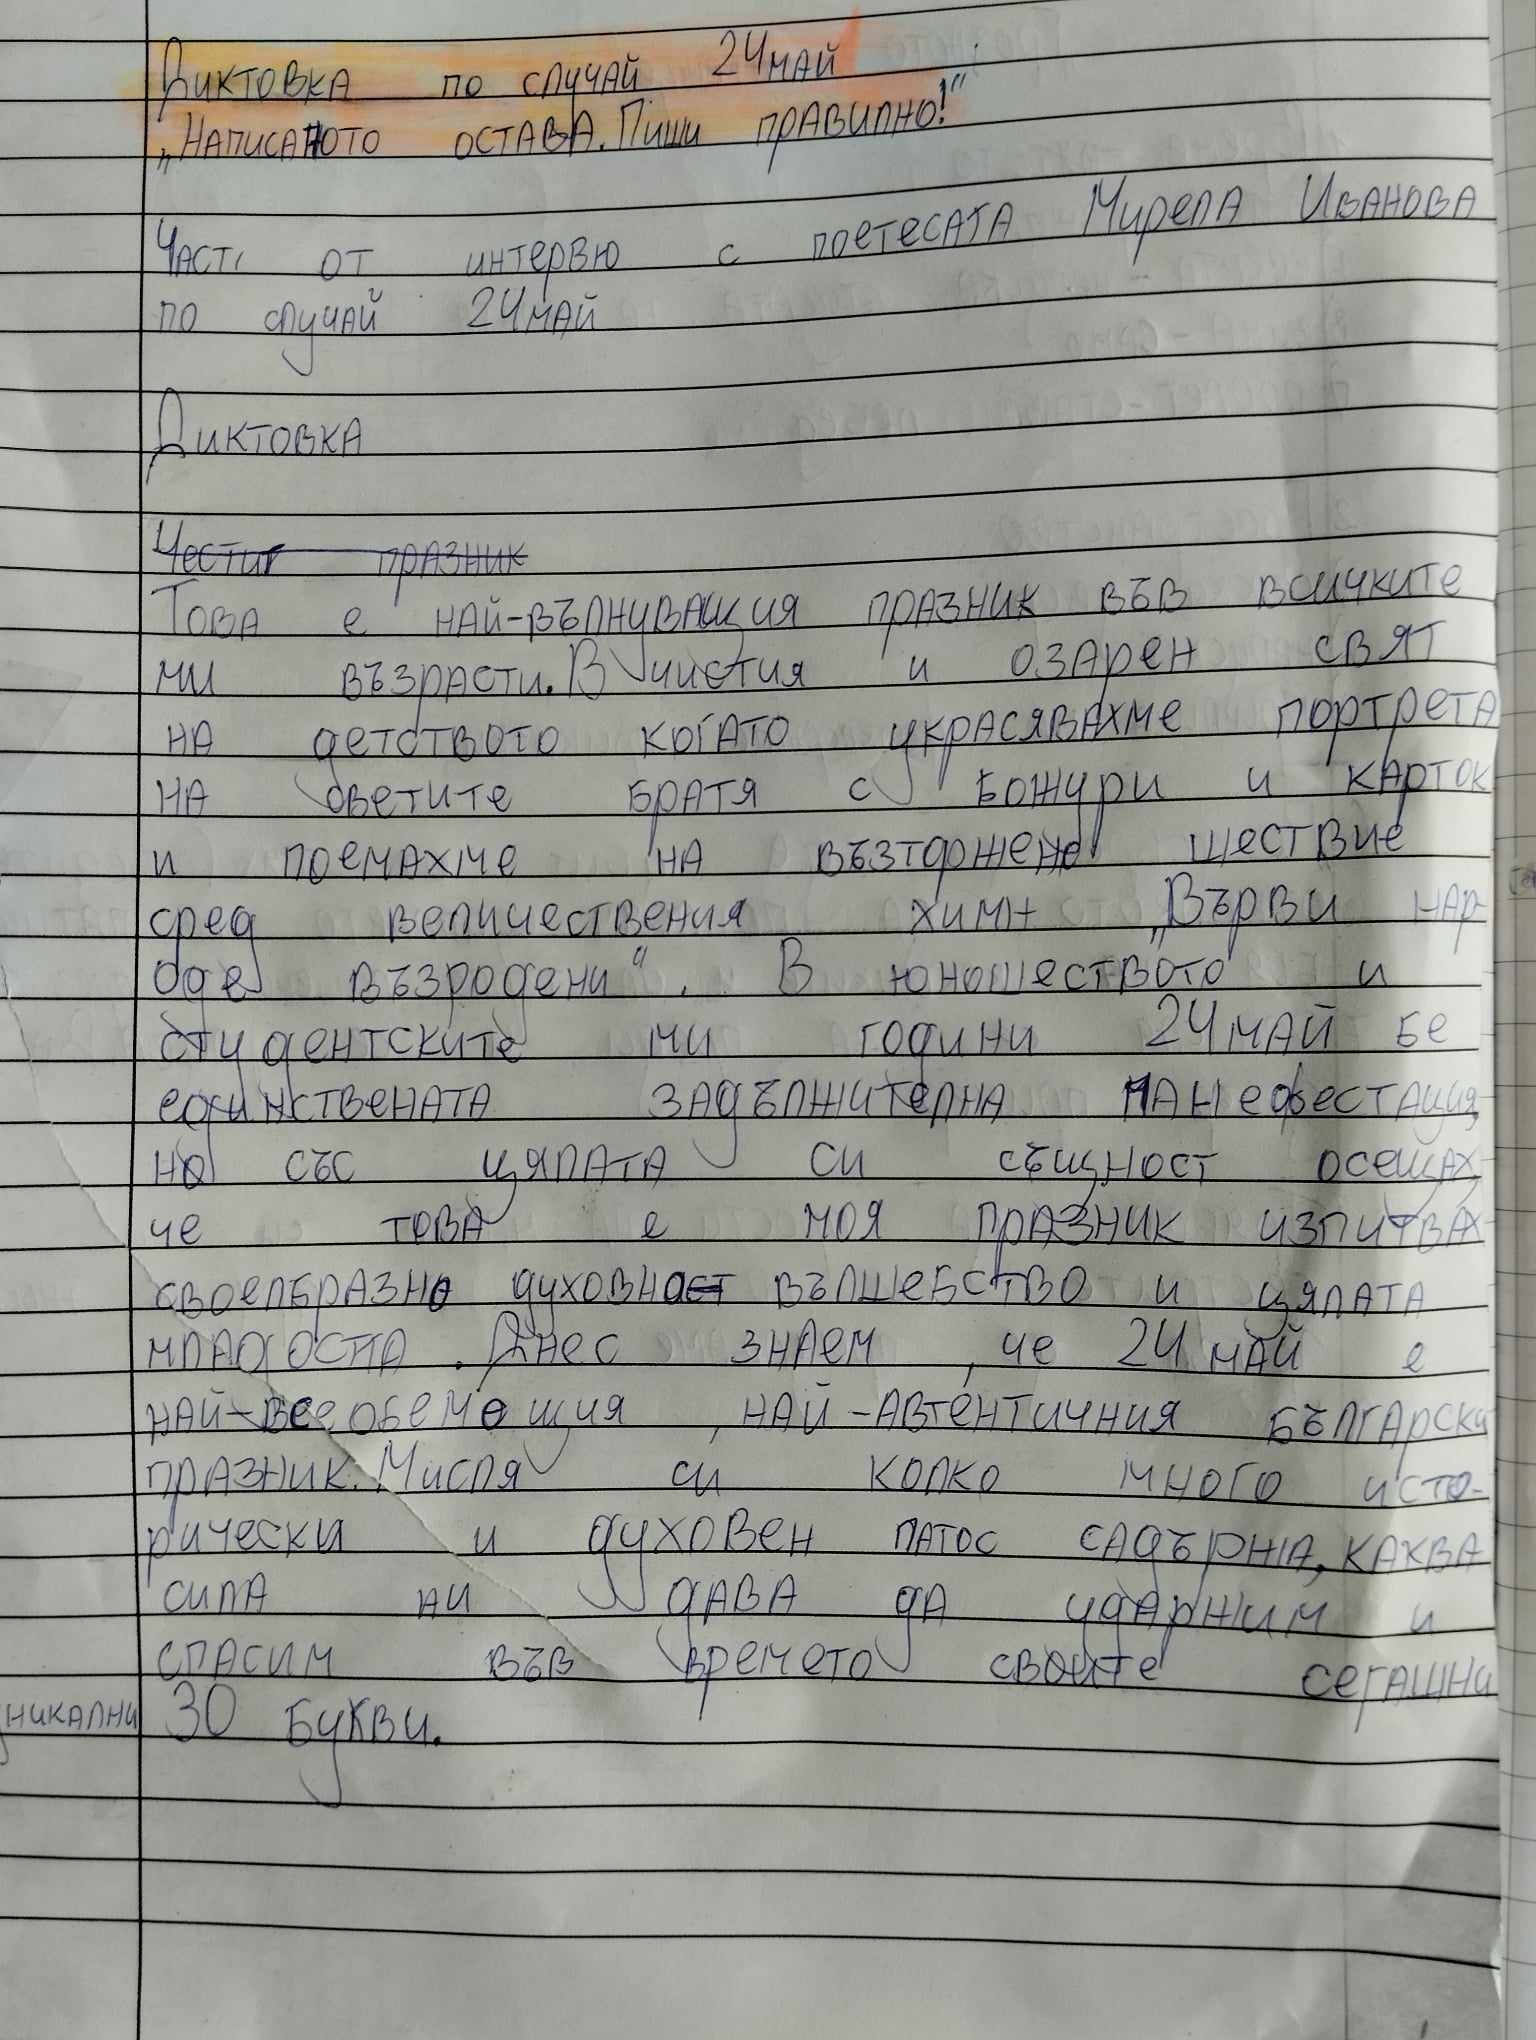 Диктовка по случай 24 май
„Написаното остава. Пиши правилно!"
Част от интервю с поетесата Мирела Иванова
по случай 24 май
Диктовка
Честит празник
Това е най-вълнуващия празник във всичките
ми възрасти. В чистия и озарен свят
на детството когато украсявахме портрета
на светите братя с божури и карток
и поемахме на възторжено шествие
сред величествения химн „Върви нар-
оде възродени". В юношеството и
студентските ми години 24 май бе
единствената задължителна манефестация,
но със цялата си същност осещах,
че това е моя празник изпитвах
своеобразно духовно вълшебство и цялата
младост. Днес знаем, че 24 май е
най-всеобемащия, най-автентичния български
празник. Мисля си колко много исто-
рически и духовен патос садържа, каква
сила ни дава да ударжим и
спасим във времето своите сегашни
уникални 30 букви.